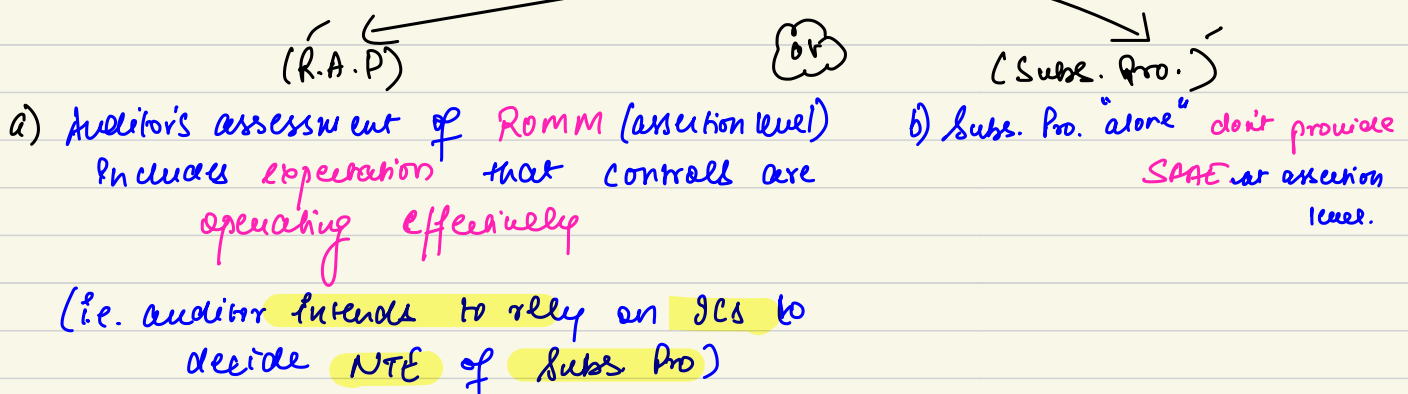 (R.A.P)
or
(Subs. Pro.)
a) Auditor's assessment of ROMM (assertion level)
includes expectation that controls are
operating effectively
(i.e. auditor intends to rely on ICs to
decide NTE of Subs. Pro)
b) Subs. Pro. "alone" don't provide
SAAE at assertion
level.